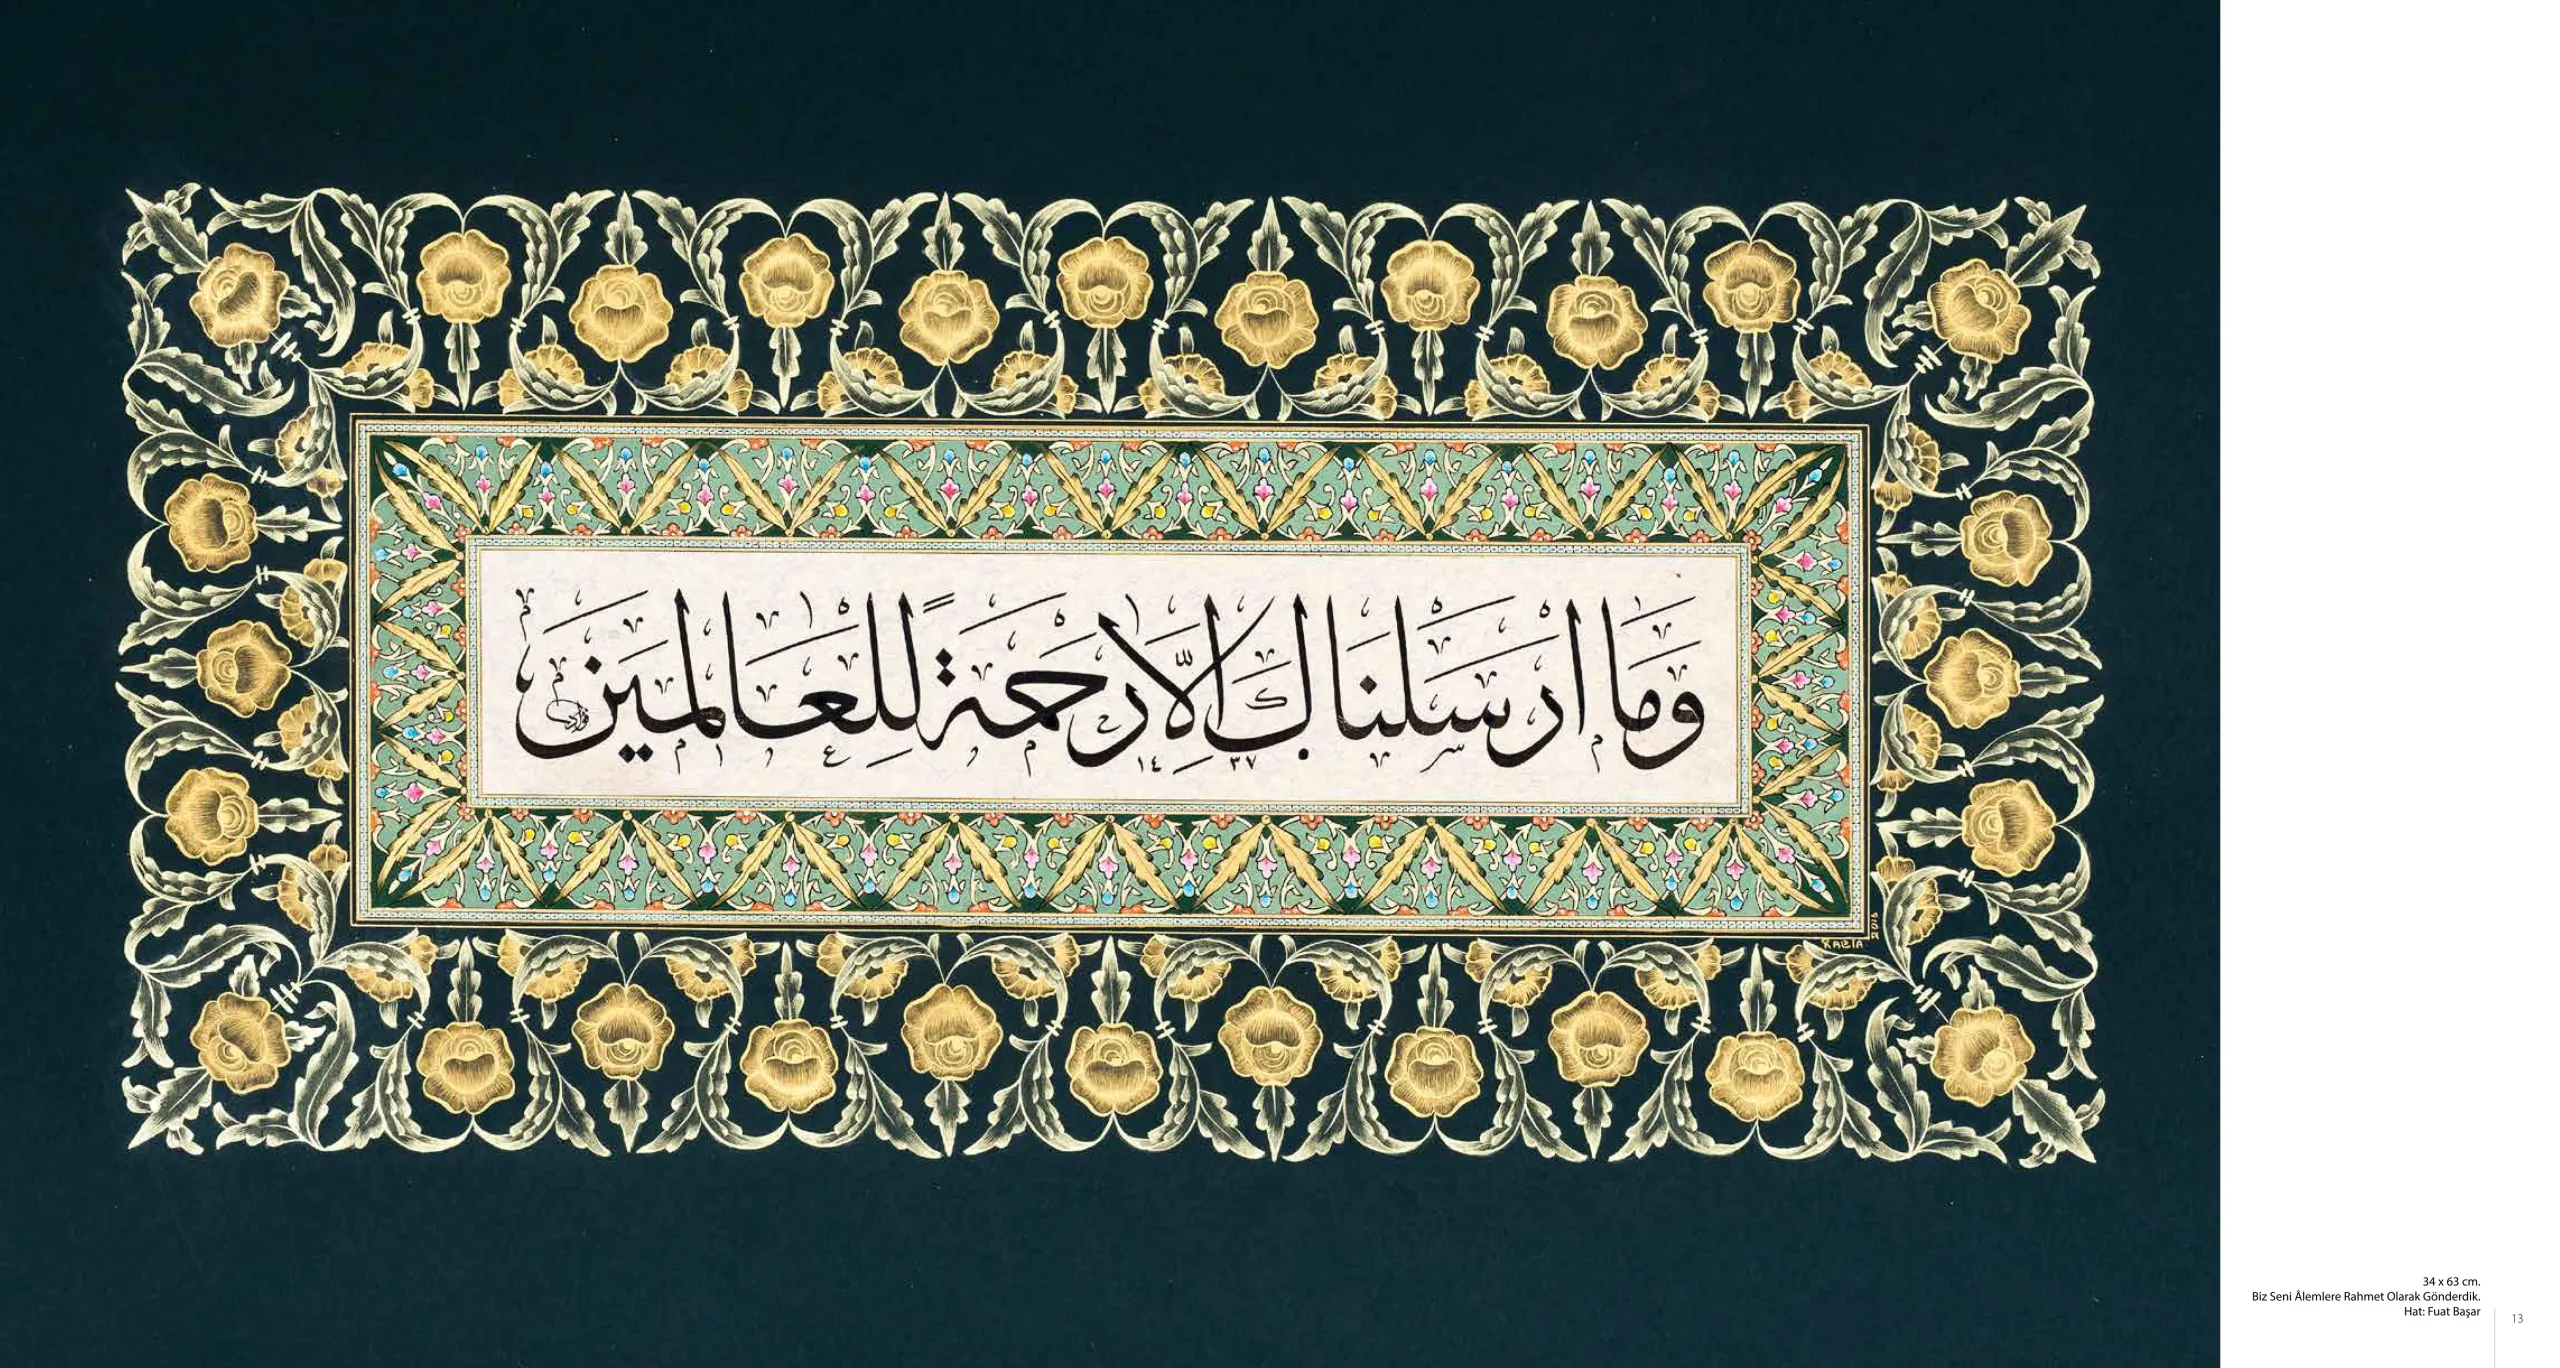 وَمَا اَرْسَلْنَاكَ اِلَّا رَحْمَةً لِلْعَالَمِينَ
١٤٣٧
RABIA 2015
34 x 63 cm.
Biz Seni Âlemlere Rahmet Olarak Gönderdik.
Hat: Fuat Başar
13